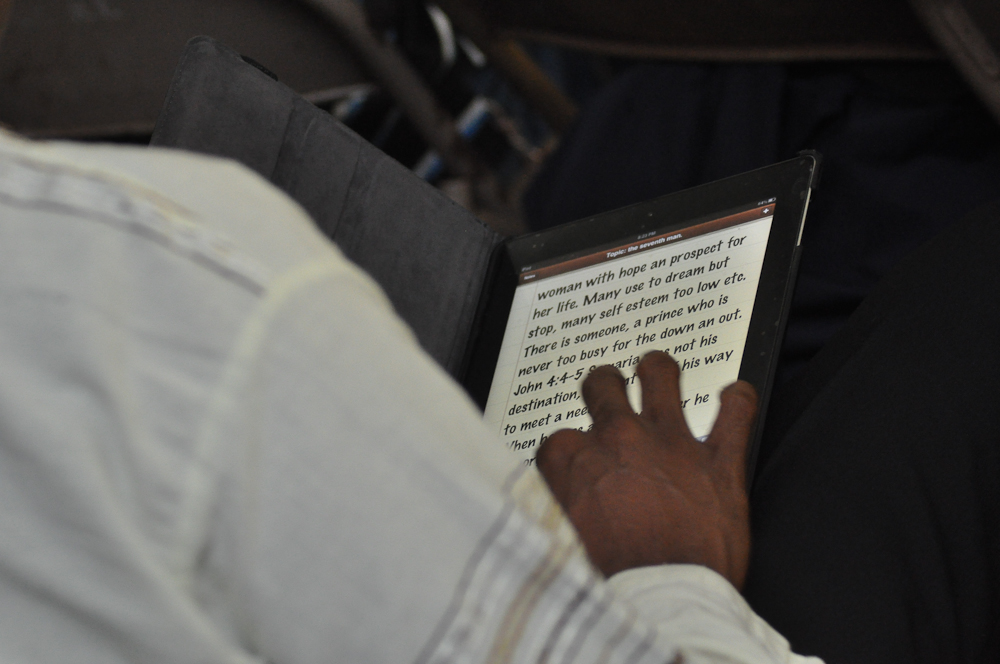 iPad
44%
Topic: the seventh man.
Notes
woman with hope an prospect for
her life. Many use to dream but
stop, many self esteem too low etc.
There is someone, a prince who is
never too busy for the down an out.
John 4:4-5 not his
destination, his way
to meet a he
When